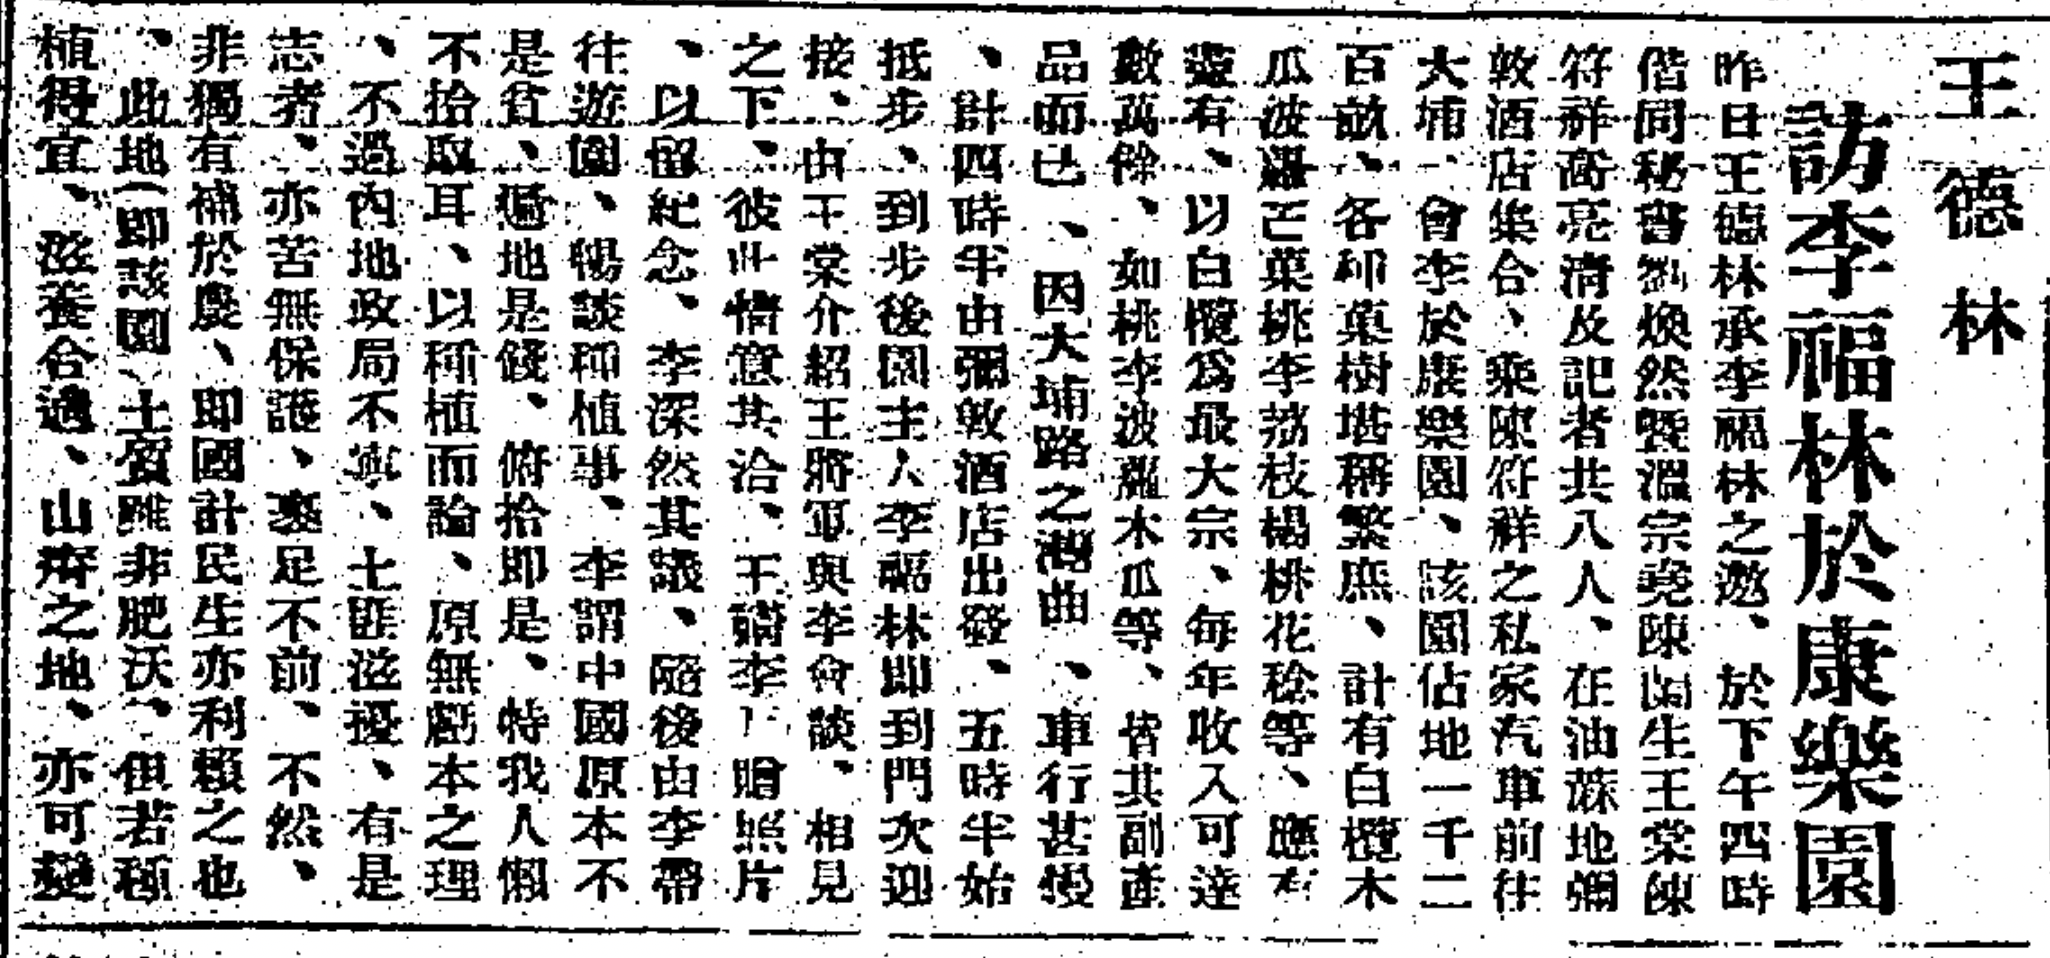 王德林
訪李福林於康樂園
昨日王德林承李福林之邀、於下午四時
偕同秘書劉煥然曁溫宗堯陳閑生王棠陳
符祥喬亮淸及記者共八人、在油蔴地彌
敦酒店集合、乘陳符祥之私家汽車前往
大埔、會李於康樂園、該園佔地一千二
百畝、各種菓樹堪稱繁庶、計有白欖木
瓜波羅芒菓桃李荔枝楊桃花稔等、應有
盡有、以白欖爲最大宗、每年收入可達
數萬餘、如桃李波羅木瓜等、皆其副產
品而已、因大埔路之灣曲、車行甚慢
、計四時半由彌敦酒店出發、五時半始
抵步、到步後園主人李福林即到門次迎
接、由王棠介紹王將軍與李會談、相見
之下、彼此情意其洽、王請李 贈照片
、以留紀念、李深然其議、隨後由李帶
往遊園、暢談種植事、李謂中國原本不
是貧、遍地是錢、俯拾即是、特我人懶
不拾取耳、以種植而論、原無虧本之理
、不過內地政局不寧、土匪滋擾、有是
志者、亦苦無保護、裹足不前、不然、
非獨有補於農、即國計民生亦利賴之也
、此地(即該園)土質雖非肥沃、但若種
植得宜、滋養合適、山瘠之地、亦可變